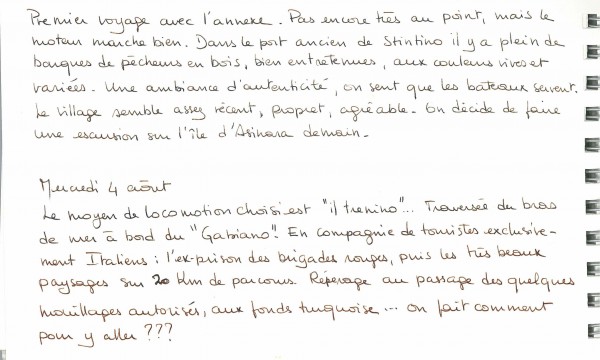 Premier voyage avec l'annexe. Pas encore très au point, mais le
moteur marche bien. Dans le port ancien de Stintino il y a plein de
barques de pêcheurs en bois, bien entretenues, aux couleurs vives et
variées. Une ambiance d'autenticité, on sent que les bateaux servent.
Le village semble assez récent, propret, agréable. On décide de faire
une escursion sur l'île d'Asinara demain.
Mercredi 4 août
Le moyen de locomotion choisi est "il trenino"... Traversée du bras
de mer à bord du "Gabiano". En compagnie de touristes exclusive-
ment Italiens : l'ex-prison des brigades rouges, puis les très beaux
paysages sur 20 km de parcours. Répérage au passage des quelques
mouillages autorisés, aux fonds turquoise... on fait comment
pour y aller ???